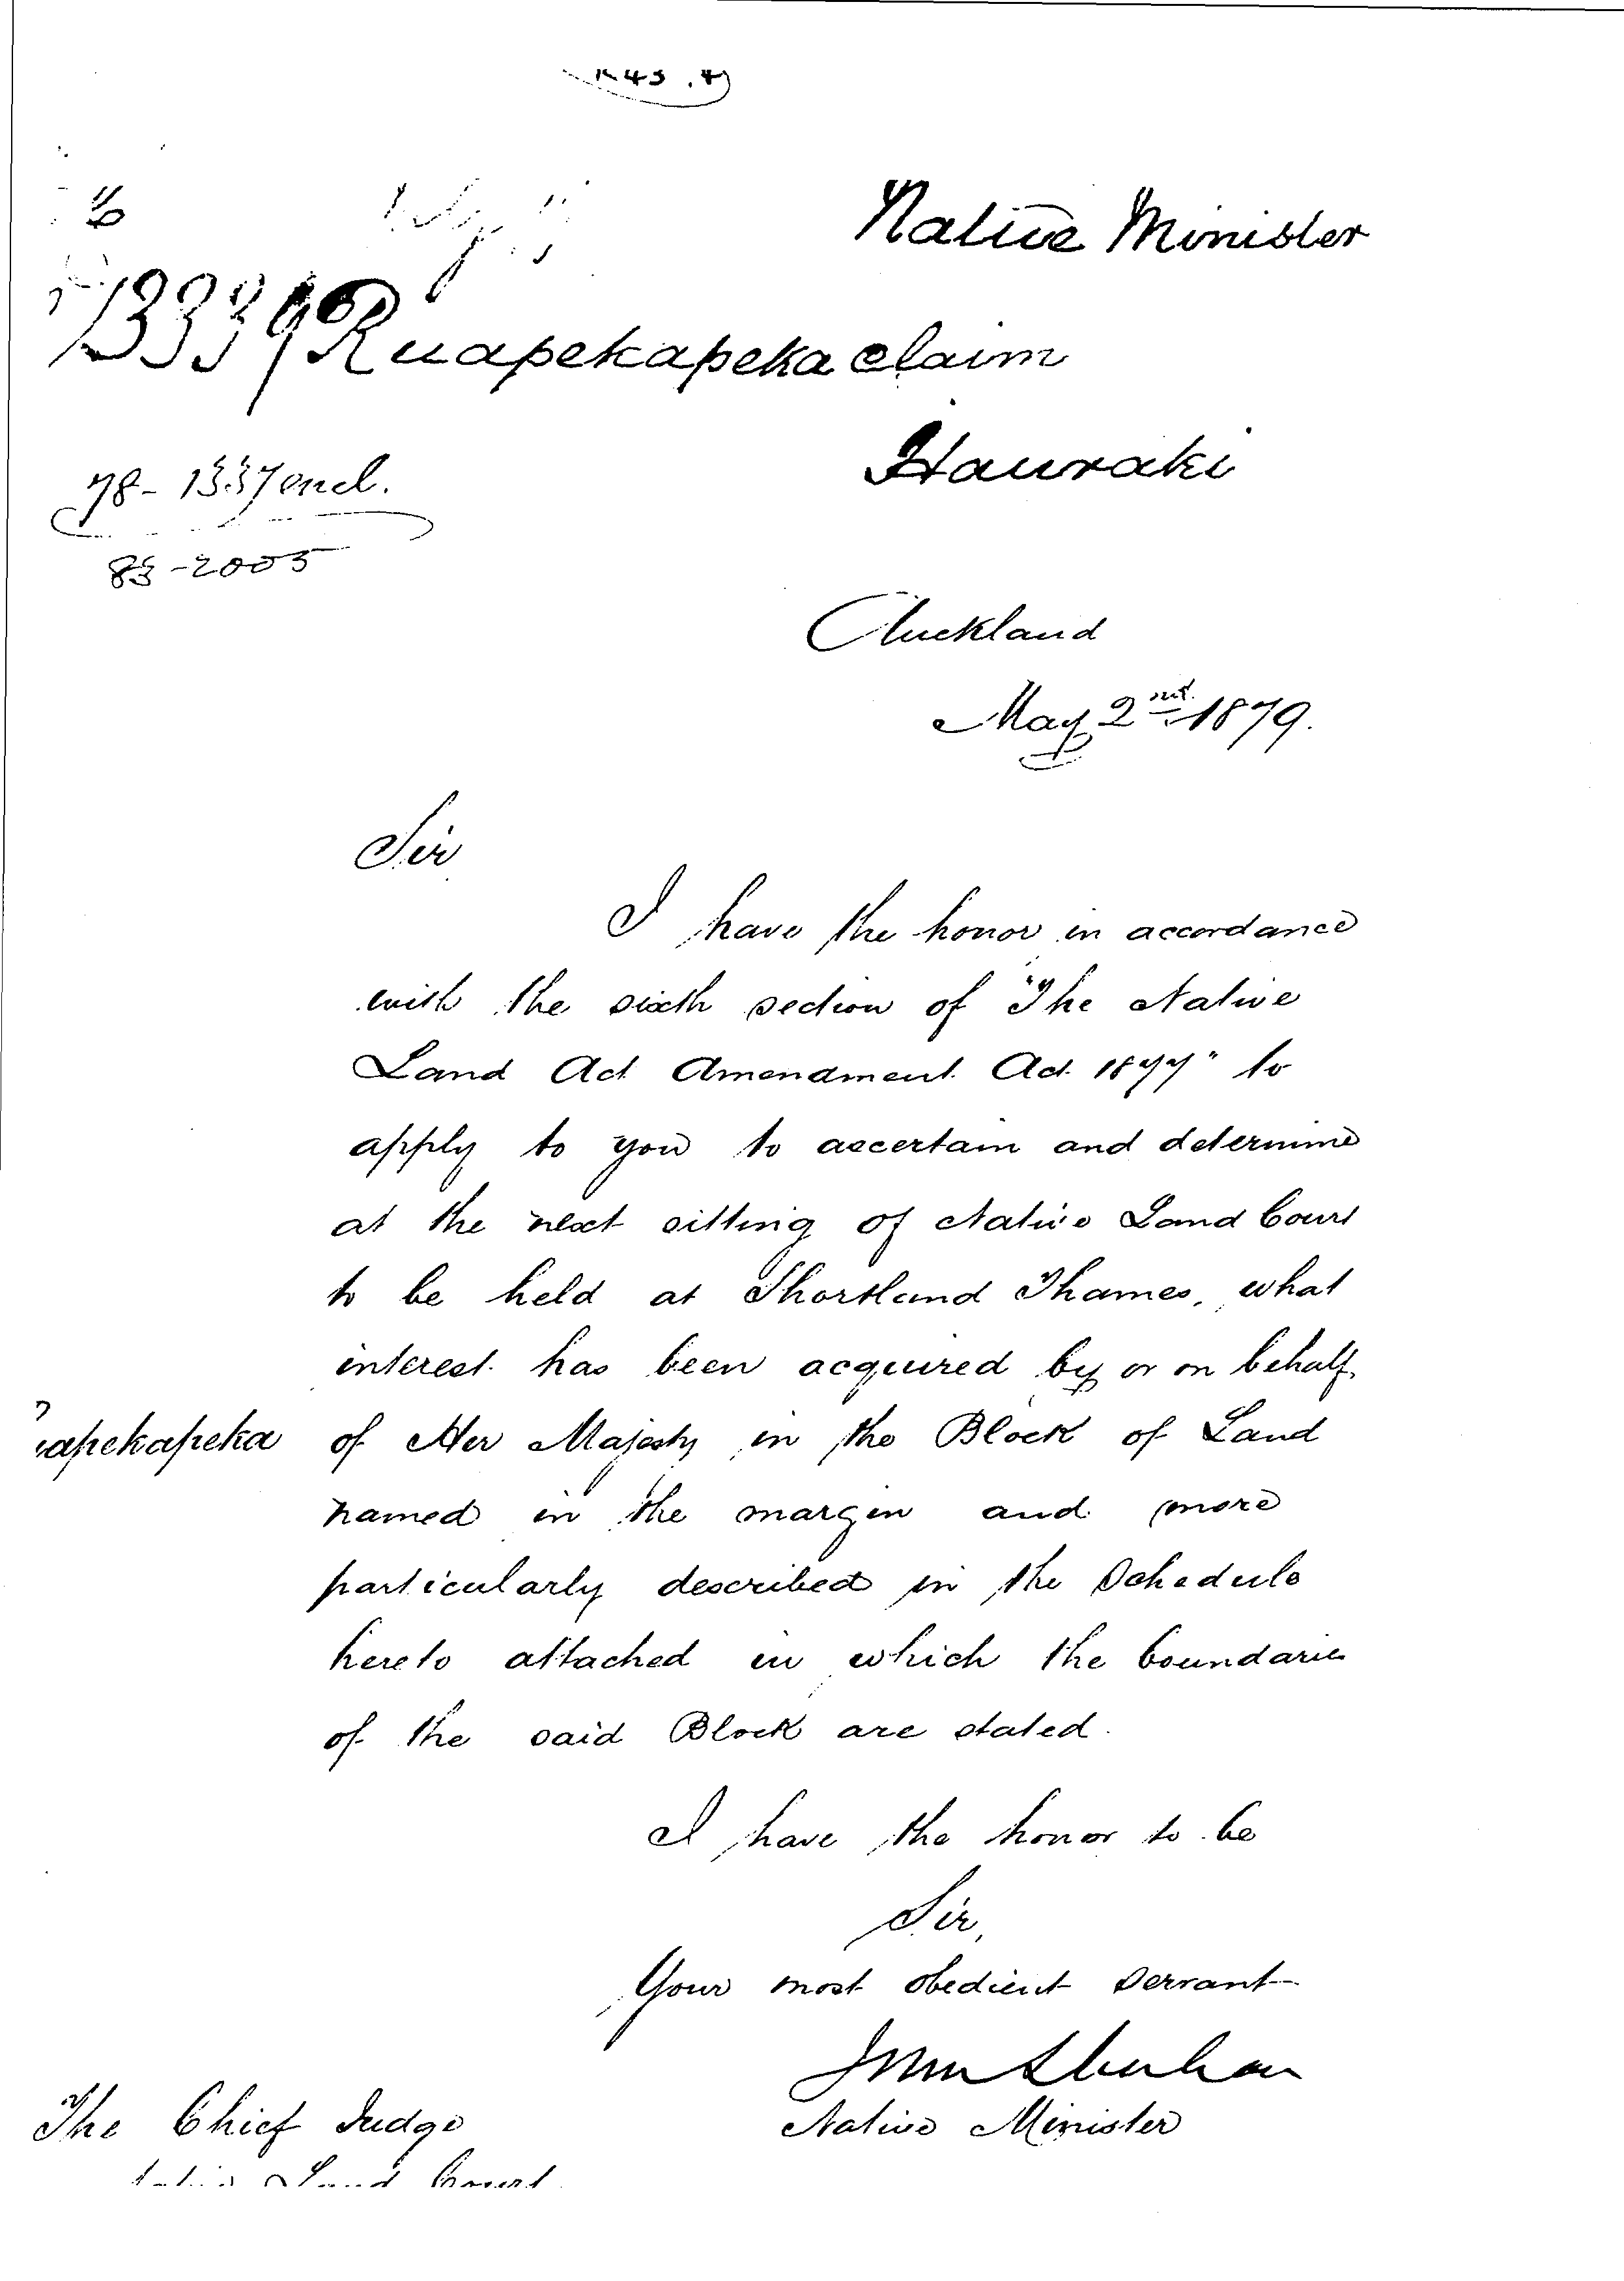 Native Minister
Ruapekapeka claim
Hauraki
78-1337 encl.
83-2005
Auckland
May 2nd 1879.
Sir
I have the honor in accordance
with the sixth section of "The Native
Land Act Amendment Act 1877" to
apply to you to ascertain and determine
at the next sitting of Native Land Court
to be held at Shortland Thames, what
interest has been acquired by or on behalf
apekapeka of Her Majesty in the Block of Land
named in the margin and more
particularly described in the Schedule
hereto attached in which the boundaries
of the said Block are stated.
I have the honor to be
Sir,
Your most obedient servant
John Sheehan
Native Minister
The Chief Judge
Native Land Court